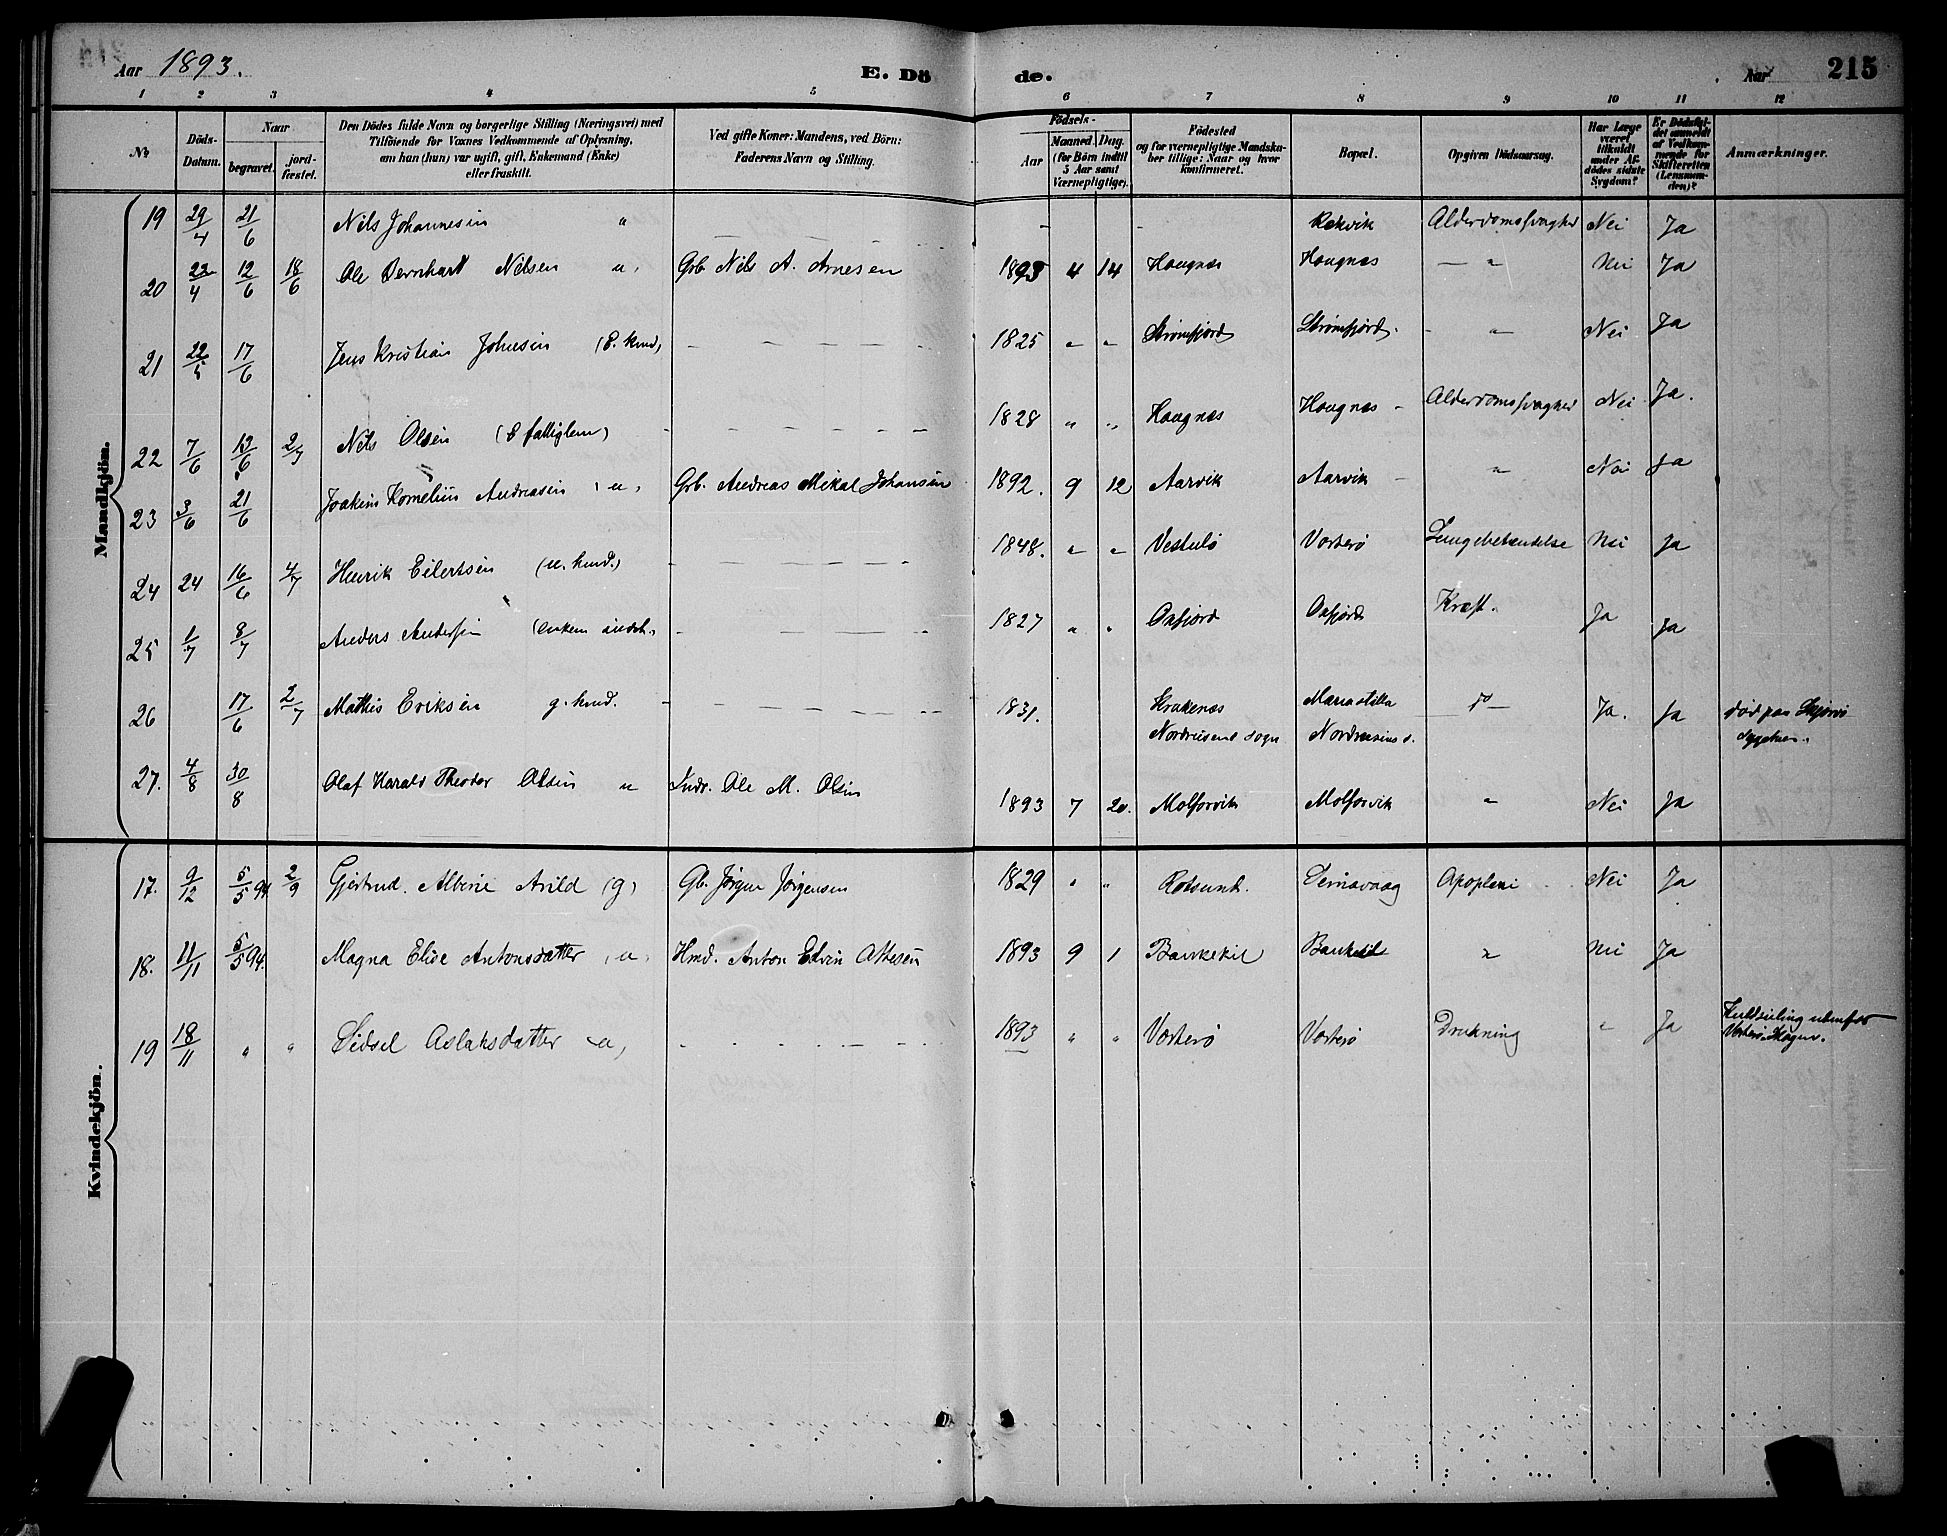 Aar 1893.
E. Dö
de.
Aar
215
1 2 3 4 5 6 7 8 9 10 11 12
No
Döds-Datum.
Naar
begravet.
jord-fæstet.
Den Dödes fulde Navn og borgerlige Stilling (Næringsvei) med
Tilföiende for Voxnes Vedkommende af Oplysning,
om han (hun) var ugift, gift, Enkemand (Enke)
eller fraskilt.
Ved gifte Koner: Mandens, ved Börn:
Faderens Navn og Stilling.
Födsels-
Aar
Maaned. Dag.
(for Börn indtil
5 Aar samt
Værnepligtige).
Födested
og for værnepligtige Mandska-
ber tillige: Naar og hvor
konfirmeret.
Bopæl.
Opgiven Dödsaarsag.
Har Læge
været
tilkaldt
under Af-
dödes sidste
Sygdom?
Er Dödsfal-
det anmeldt
af Vedkom-
mende for
Skifteretten
(Lensman-
den)?
Anmærkninger.
Mandkjön.
19 29/4 21/6 Nils Johannesen " - - Rekvik Nei Ja
20 22/4 12/6 18/6 Ole Bernhart Nilsen u, Grb Nils A. Arnesen 1893 4 14 Haugnæs Haugnæs — " Nei Ja
21 22/5 17/6 Jens Kristian Johnsen 1825 " " Strømfjord Strømfjord. - " Nei Ja
22 7/6 13/6 2/7 Nils Olsen 1828 " " Haugnæs Haugnæs - Nei Ja.
23 3/6 21/6 Joakim Kornelius Andreasen u, Grb. Andreas Mikal Johansen 1892. 9 12 Aarvik Aarvik - " Nei Ja
24 24 16/6 4/7 Henrik Eilertsen (u. kmd.) 1848. " " Vorterø Nei Ja
25 1/7 8/7 Anders Andersen 1827 " " Oxfjord Oxfjord Kræft. Ja Ja
26 17/6 2/7 Mathis Eriksen g. kmd. 1831. Krakenæs do Ja. Ja død paa Skjervø
sogn
27. 4/8 30/8 Olaf Harald Theodor Olsen u Indr. Ole M. Olsen 1893 7 20. Molforvik Molforvik " Nei Ja
Kvindekjön.
17. 9/12 5/5 94 2/9 Gjertrud. Albine Arild (g) Gb. Jørgen Jørgensen 1829 " " Rotsund. Apoplexi Nei Ja
18. 11/11 5/5 94. Magna Elide Antonsdatter u, Hmd. Anton Edvin 1893 9 1 Bankekil Bankekil " Nei Ja
19 18/11 " " Sidsel Aslaksdatter u, 1893 " " Vorterø Vorterø Drukning " Ja Kuldseiling udenfor